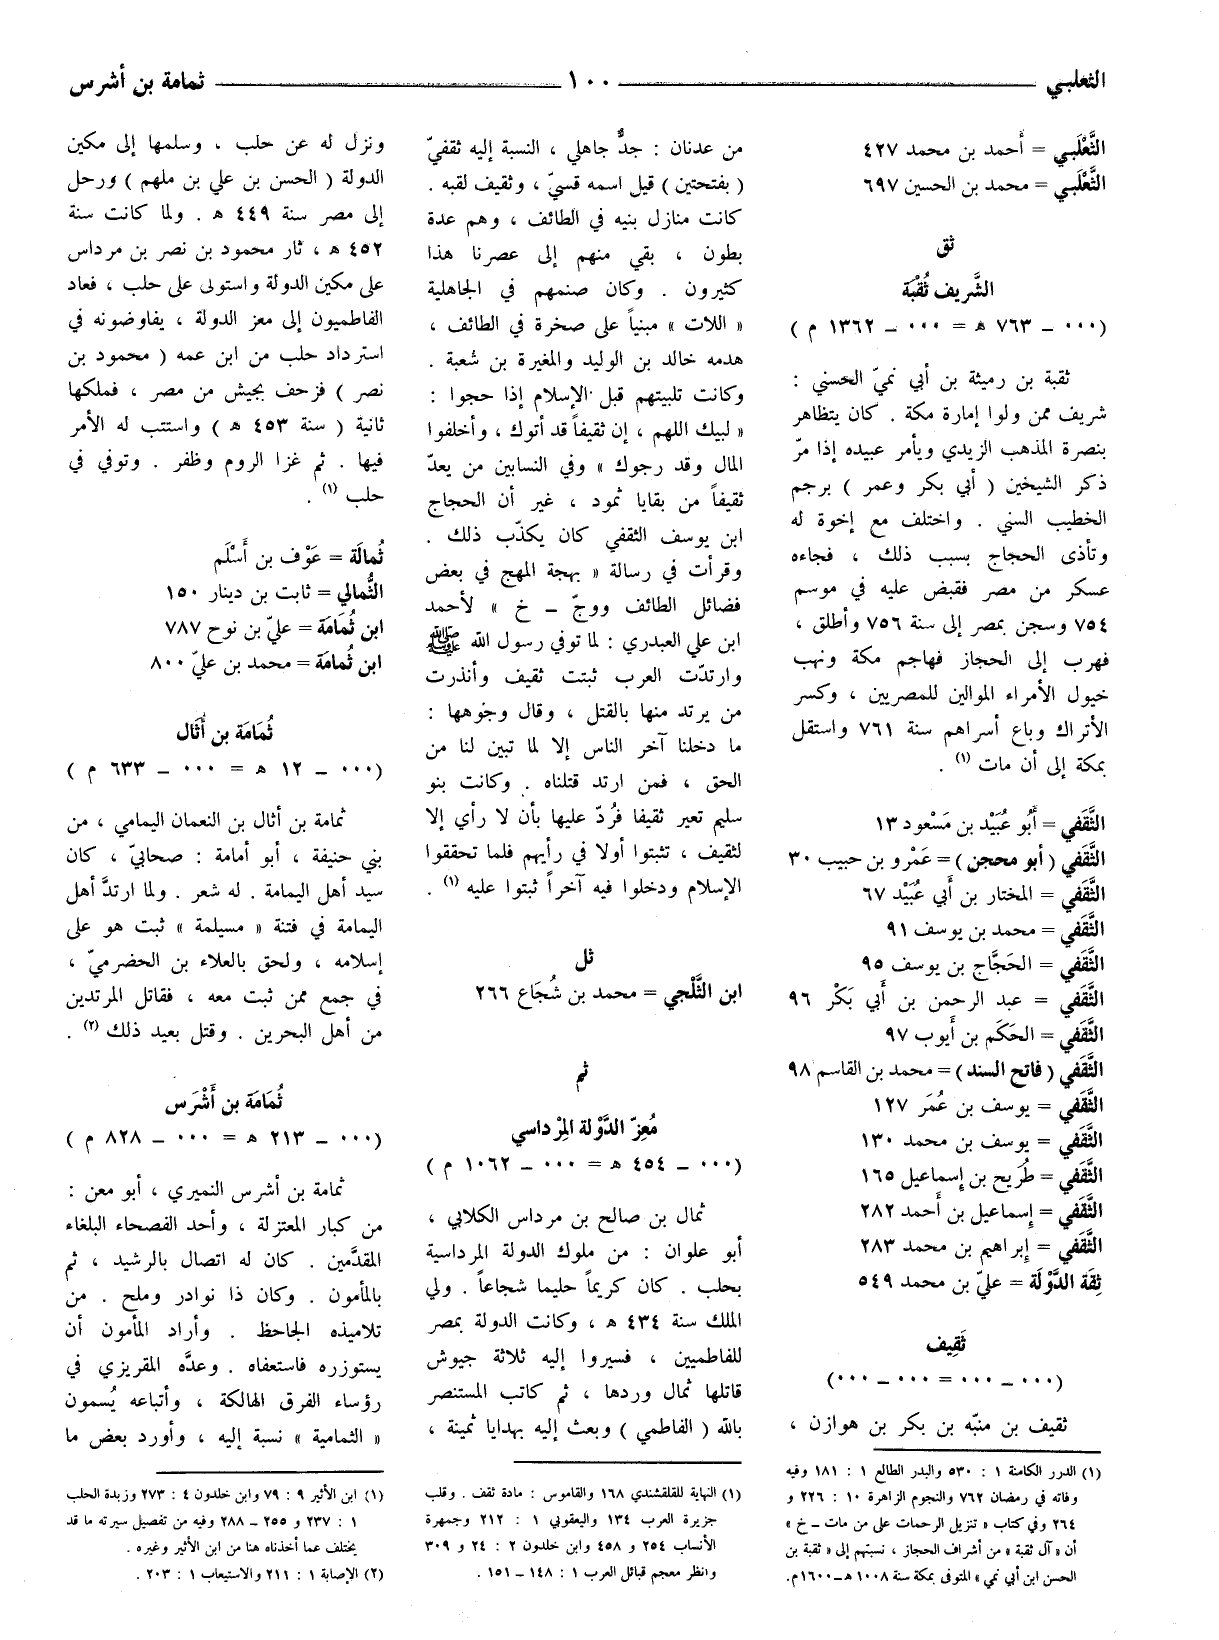 الثعلبي ١٠٠ ثمامة بن أشرس
الثَّعْلَبي = أحمد بن محمد ٤٢٧
الثَّعْلَبي = محمد بن الحسين ٦٩٧
ثق
الشَّريف ثُقْبَة
(٠٠٠ ــ ٧٦٣ هـ = ٠٠٠ ــ ١٣٦٢ م )
ثقبة بن رميثة بن أبي نميّ الحسني :
شريف ممن ولوا إمارة مكة . كان يتظاهر
بنصرة المذهب الزيدي ويأمر عبيده إذا مرّ
ذكر الشيخين ( أبي بكر وعمر ) برجم
الخطيب السني . واختلف مع إخوة له
وتأذى الحجاج بسبب ذلك ، فجاءه
عسكر من مصر فقبض عليه في موسم
٧٥٤ وسجن بمصر إلى سنة ٧٥٦ وأطلق ،
فهرب إلى الحجاز فهاجم مكة ونهب
خيول الأمراء الموالين للمصريين ، وكسر
الأتراك وباع أسراهم سنة ٧٦١ واستقل
بمكة إلى أن مات (١) .
الثَّقَفي = أبُو عُبَيْد بن مَسْعود ١٣
الثَّقَفي ( أبو محجن ) = عَمْرو بن حبيب ٣٠
الثَّقَفي = المختار بن أبي عُبَيْد ٦٧
الثَّقَفي = محمد بن يوسف ٩١
الثَّقَفي = الحَجَّاج بن يوسف ٩٥
الثَّقَفي = عبد الرحمن بن أبي بَكَرْ ٩٦
الثَّقَفي = الحَكَم بن أيوب ٩٧
الثَّقَفي ( فاتح السند ) = محمد بن القاسم ٩٨
الثَّقَفي = يوسف بن عُمَر ١٢٧
الثَّقَفي = يوسف بن محمد ١٣٠
الثَّقَفي = طُرَيح بن إسماعيل ١٦٥
الثَّقَفي = إسماعيل بن أحمد ٢٨٢
الثَّقَفي = إبراهيم بن محمد ٢٨٣
ثِقَة الدَّوْلَة = عليّ بن محمد ٥٤٩
ثَقِيف
(٠٠٠ ــ ٠٠٠ = ٠٠٠ ــ ٠٠٠)
ثقيف بن منبّه بن بكر بن هوازن ،
(١) الدرر الكامنة ١ : ٥٣٠ والبدر الطالع ١ : ١٨١ وفيه
وفاته في رمضان ٧٦٢ والنجوم الزاهرة ١٠ : ٢٢٦ و
٢٦٤ وفي كتاب « تنزيل الرحمات على من مات ــ خ »
أن « آل ثقبة » من أشراف الحجاز ، نسبتهم إلى « ثقبة بن
الحسن ابن أبي نمي » المتوفى بمكة سنة ١٠٠٨ هـ ــ ١٦٠٠م.
من عدنان : جدٌّ جاهلي ، النسبة إليه ثقفيّ
( بفتحتين ) قيل اسمه قسيّ ، وثقيف لقبه .
كانت منازل بنيه في الطائف ، وهم عدة
بطون ، بقي منهم إلى عصرنا هذا
كثيرون . وكان صنمهم في الجاهلية
« اللات » مبنياً على صخرة في الطائف ،
هدمه خالد بن الوليد والمغيرة بن شعبة .
وكانت تلبيتهم قبل الإسلام إذا حجوا :
« لبيك اللهم ، إن ثقيفاً قد أتوك ، وأخلفوا
المال وقد رجوك » وفي النسابين من يعدّ
ثقيفاً من بقايا ثمود ، غير أن الحجاج
ابن يوسف الثقفي كان يكذّب ذلك .
وقرأت في رسالة « بهجة المهج في بعض
فضائل الطائف ووجّ ــ خ » لأحمد
ابن علي العبدري : لما توفي رسول الله ﷺ
وارتدّت العرب ثبتت ثقيف وأنذرت
من يرتد منها بالقتل ، وقال وجوهها :
ما دخلنا آخر الناس إلا لما تبين لنا من
الحق ، فمن ارتد قتلناه . وكانت بنو
سليم تعير ثقيفا فرُدّ عليها بأن لا رأي إلا
لثقيف ، تثبتوا أولا في رأيهم فلما تحققوا
الإسلام ودخلوا فيه آخراً ثبتوا عليه (١) .
ثل
ابن الثَّلْجي = محمد بن شُجَاع ٢٦٦
ثم
مُعِزّ الدَّوْلة المِرْداسي
(٠٠٠ ــ ٤٥٤ هـ = ٠٠٠ ــ ١٠٦٢ م )
ثمال بن صالح بن مرداس الكلابي ،
أبو علوان : من ملوك الدولة المرداسية
بحلب . كان كريماً حليما شجاعاً . ولي
الملك سنة ٤٣٤ هـ ، وكانت الدولة بمصر
للفاطميين ، فسيروا إليه ثلاثة جيوش
قاتلها ثمال وردها ، ثم كاتب المستنصر
بالله ( الفاطمي ) وبعث إليه بهدايا ثمينة ،
(١) النهاية للقلقشندي ١٦٨ والقاموس : مادة ثقف . وقلب
جزيرة العرب ١٣٤ واليعقوبي ١ : ٢١٢ وجمهرة
الأنساب ٢٥٤ و ٤٥٨ وابن خلدون ٢ : ٢٤ و ٣٠٩
وانظر معجم قبائل العرب ١ : ١٤٨ ــ ١٥١ .
ونزل له عن حلب ، وسلمها إلى مكين
الدولة ( الحسن بن علي بن ملهم ) ورحل
إلى مصر سنة ٤٤٩ هـ . ولما كانت سنة
٤٥٢ هـ ، ثار محمود بن نصر بن مرداس
على مكين الدولة واستولى على حلب ، فعاد
الفاطميون إلى معز الدولة ، يفاوضونه في
استرداد حلب من ابن عمه ( محمود بن
نصر ) فزحف بجيش من مصر ، فملكها
ثانية ( سنة ٤٥٣ هـ ) واستتب له الأمر
فيها . ثم غزا الروم وظفر . وتوفي في
حلب (١) .
ثُمالَة = عَوْف بن أَسْلَم
الثُّمالي = ثابت بن دينار ١٥٠
ابن ثُمَامَة = عليّ بن نوح ٧٨٧
ابن ثُمَامَة = محمد بن عليّ ٨٠٠
ثُمَامَة بن أُثَال
(٠٠٠ ــ ١٢ هـ = ٠٠٠ ــ ٦٣٣ م )
ثمامة بن أثال بن النعمان اليمامي ، من
بني حنيفة ، أبو أمامة : صحابيّ ، كان
سيد أهل اليمامة . له شعر . ولما ارتدَّ أهل
اليمامة في فتنة « مسيلمة » ثبت هو على
إسلامه ، ولحق بالعلاء بن الحضرميّ ،
في جمع ممن ثبت معه ، فقاتل المرتدين
من أهل البحرين . وقتل بعيد ذلك (٢) .
ثُمَامَة بن أَشْرَس
(٠٠٠ ــ ٢١٣ هـ = ٠٠٠ ــ ٨٢٨ م )
ثمامة بن أشرس النميري ، أبو معن :
من كبار المعتزلة ، وأحد الفصحاء البلغاء
المقدَّمين . كان له اتصال بالرشيد ، ثم
بالمأمون . وكان ذا نوادر وملح . من
تلاميذه الجاحظ . وأراد المأمون أن
يستوزره فاستعفاه . وعدَّه المقريزي في
رؤساء الفرق الهالكة ، وأتباعه يُسمون
« الثمامية » نسبة إليه ، وأورد بعض ما
(١) ابن الأثير ٩ : ٧٩ وابن خلدون ٤ : ٢٧٣ وزبدة الحلب
١ : ٢٣٧ و ٢٥٥ ــ ٢٨٨ وفيه من تفصيل سيرته ما قد
يختلف عما أخذناه هنا من ابن الأثير وغيره .
(٢) الإصابة ١ : ٢١١ والاستيعاب ١ : ٢٠٣ .